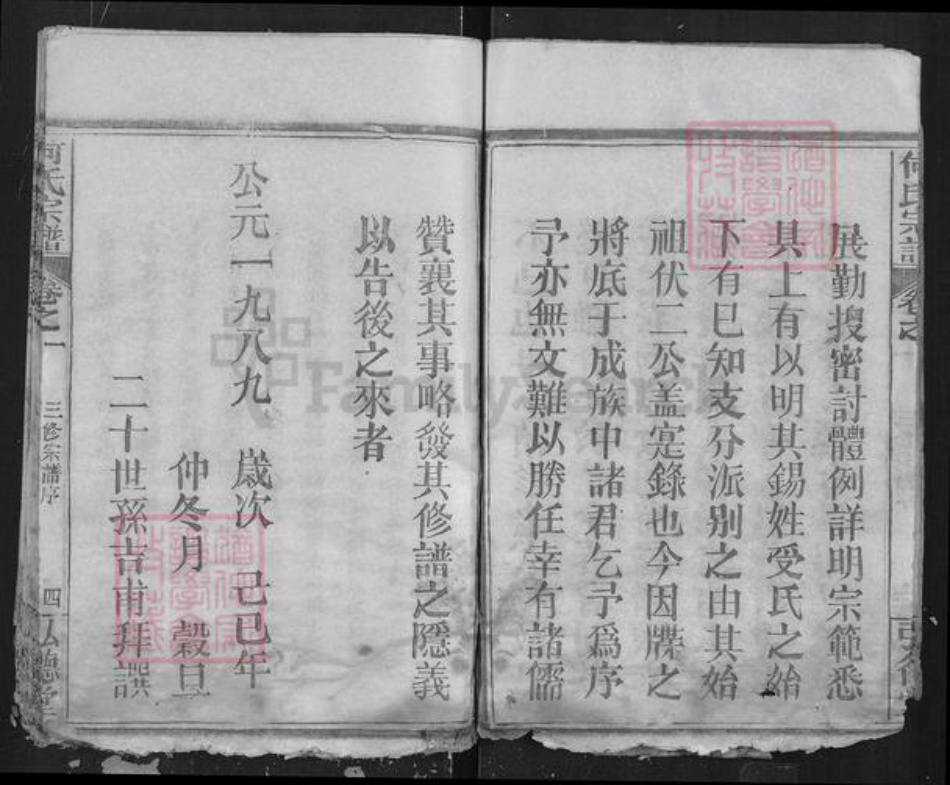 何氏宗譜
卷之
展勤搜密討體例詳明宗範悉
具上有以明其錫姓受氏之始
下有已知支分派别之由其始
祖伏二公盖寔錄也今因牒之
將底于成族中諸君乞予爲序
予亦無文難以勝任幸有諸儒
贊襄其事略發其修譜之隱義
以告後之來者
公元一九八九 歲次 己巳年
仲冬月 穀旦
二十世孫吉甫拜譔
何氏宗譜
卷之一
三修宗譜序
四
弘德堂
FamilySearch